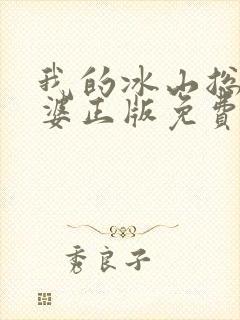 我的冰山总
婆正版免費
秀良子